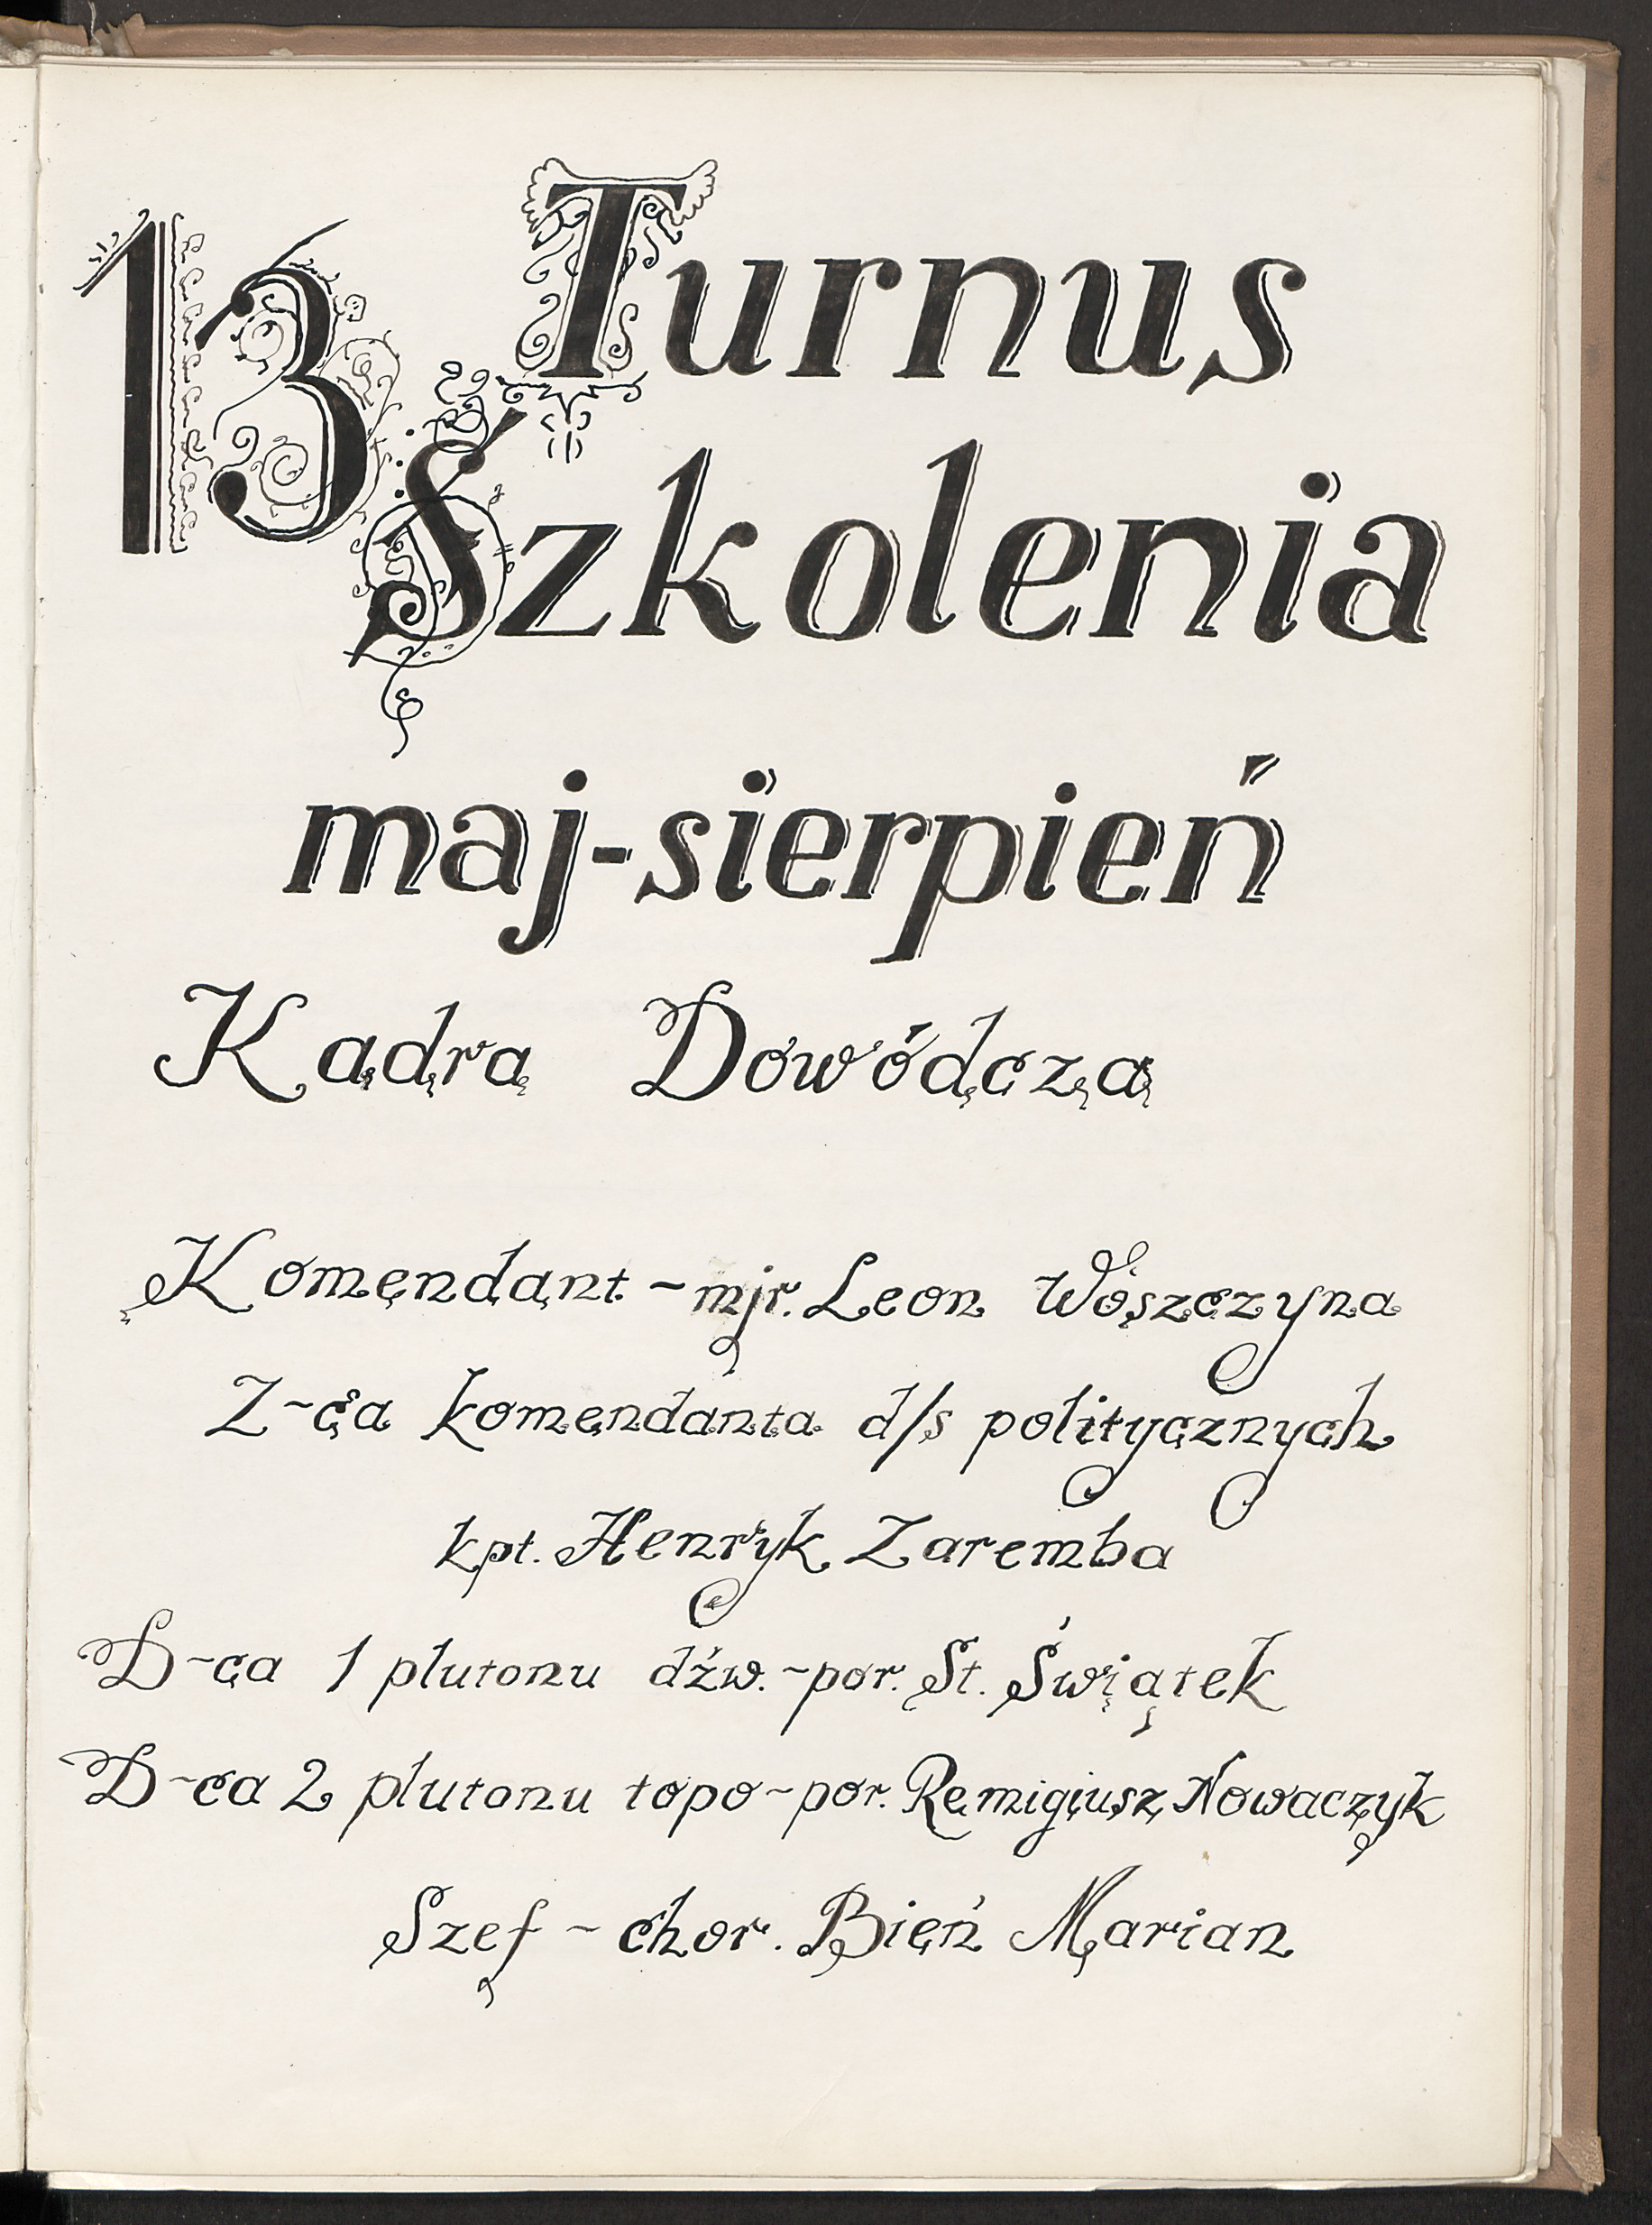 13 Turnus
Szkolenia
maj-sierpień
Kadra Dowódcza
Komendant - mjr. Leon Woszczyna
Z-ca komendanta d/s politycznych
kpt. Henryk Zaremba
D-ca 1 plutonu dźw. - por. St. Świątek
D-ca 2 plutonu topo - por. Remigiusz Nowaczyk
Szef - chor. Bień Marian